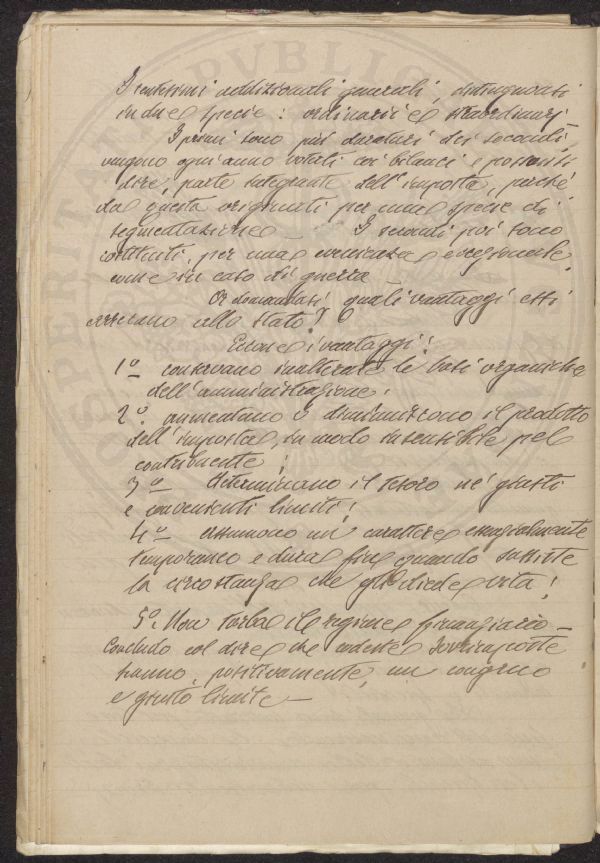 I centesimi addizionali generali, distinguonsi
in due specie: ordinarii e straordinarj.
I primi sono più duraturi dei secondi,
vengono ogni anno votati coi bilanci e possonsi
dire, parte integrante dell'imposta, perché
da questa originati per una specie di
segmentazione — I secondi poi sono
costituiti, per una evenienza eccezionale,
come in caso di guerra
Or domandasi quali vantaggi essi
arrecano allo Stato?
Eccone i vantaggi:
1º conservano inalterate le basi organiche
dell'amministrazione;
2º. aumentano o diminuiscono il prodotto
dell'imposta, in modo insensibile pel
contribuente;
3º — determinano il tesoro ne' giusti
e convenienti limiti;
4º — assumono un carattere essenzialmente
temporaneo e dura fin quando sussiste
la circostanza che gli diede vita;
5º. Non turba il regime finanziario —
Concludo col dire che codeste sovrimposte
hanno, positivamente, un congruo
e giusto limite —